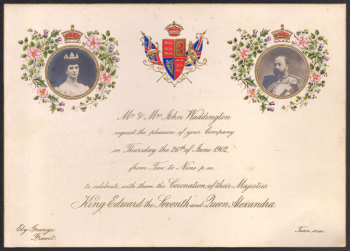 Mr & Mrs John Waddington
request the pleasure of your Company
on Thursday the 26th of June 1902,
from Two to Nine p.m.
to celebrate with them the Coronation of their Majesties
King Edward the Seventh and Queen Alexandra
Ely Grange
Frant